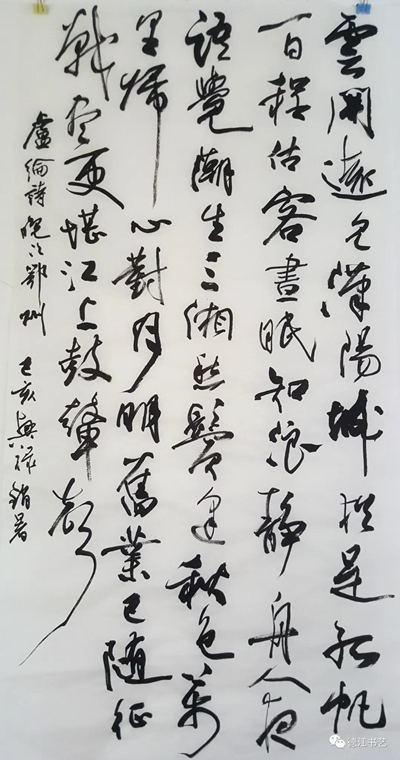 雲開遠見漢陽城猶是孤帆
一日程估客晝眠知浪靜舟人夜
語覺潮生三湘愁鬢逢秋色萬
里歸心對月明舊業已隨征
戰盡更堪江上鼓鼙聲
盧綸詩晚次鄂州 己亥興祿
江书艺